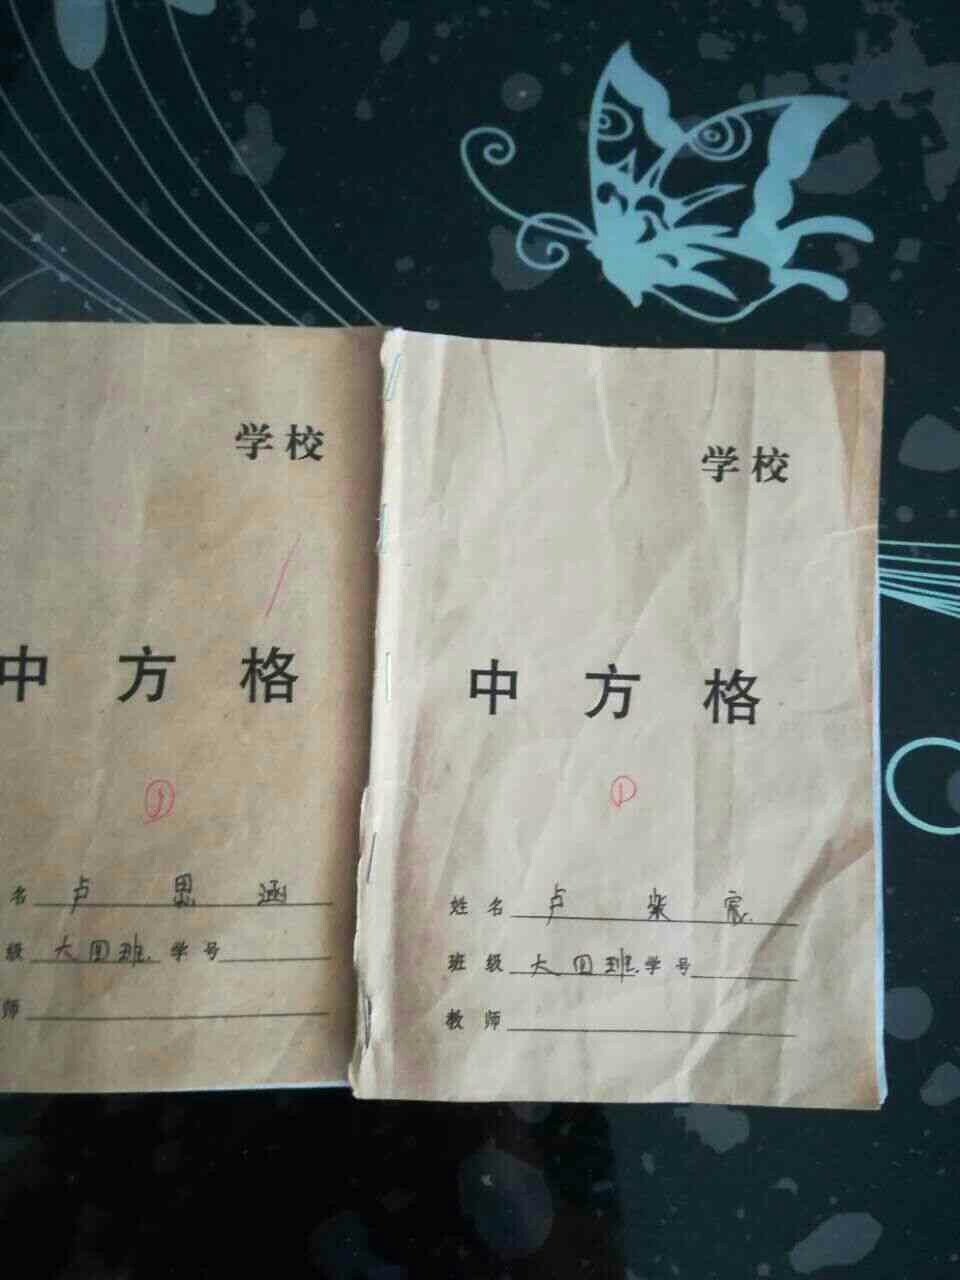 学校
中方格
①
名 卢思涵
级 大四班 学号
师
学校
中方格
①
姓名 卢紫宸
班级 大四班 学号
教师